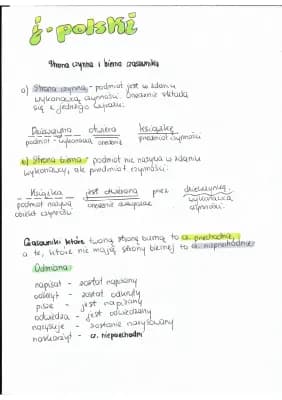 j. polski
Strona czynna i bierna czasownika
a) Strona czynna - podmiot jest w zdaniu
wykonawcą czynności. Orzeczenie składa
się z jednego wyrazu.
Dziewczyna otwiera książkę
podmiot - wykonawca orzeczenie przedmiot czynności
b) Strona bierna - podmiot nie nazywa w zdaniu
wykonawcy, ale przedmiot czynności.
Książka jest otwierana przez dziewczynę
podmiot nazywa orzeczenie wykonawca
obiekt czynności czynności
Czasowniki które tworzą stronę bierną to cz. przechodnie,
a te, które nie mają strony biernej to cz. nieprzechodnie
Odmiana:
napisał - został napisany
odkrył - został odkryty
pisze - jest napisany
odwiedza - jest odwiedzany
narysuje - zostanie narysowany
naskarżył - cz. nieprzechodni